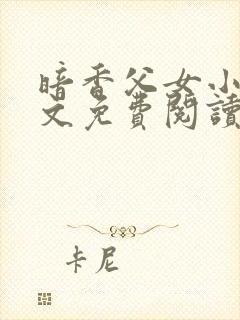 暗香父女小
文免費閱讀
卡尼